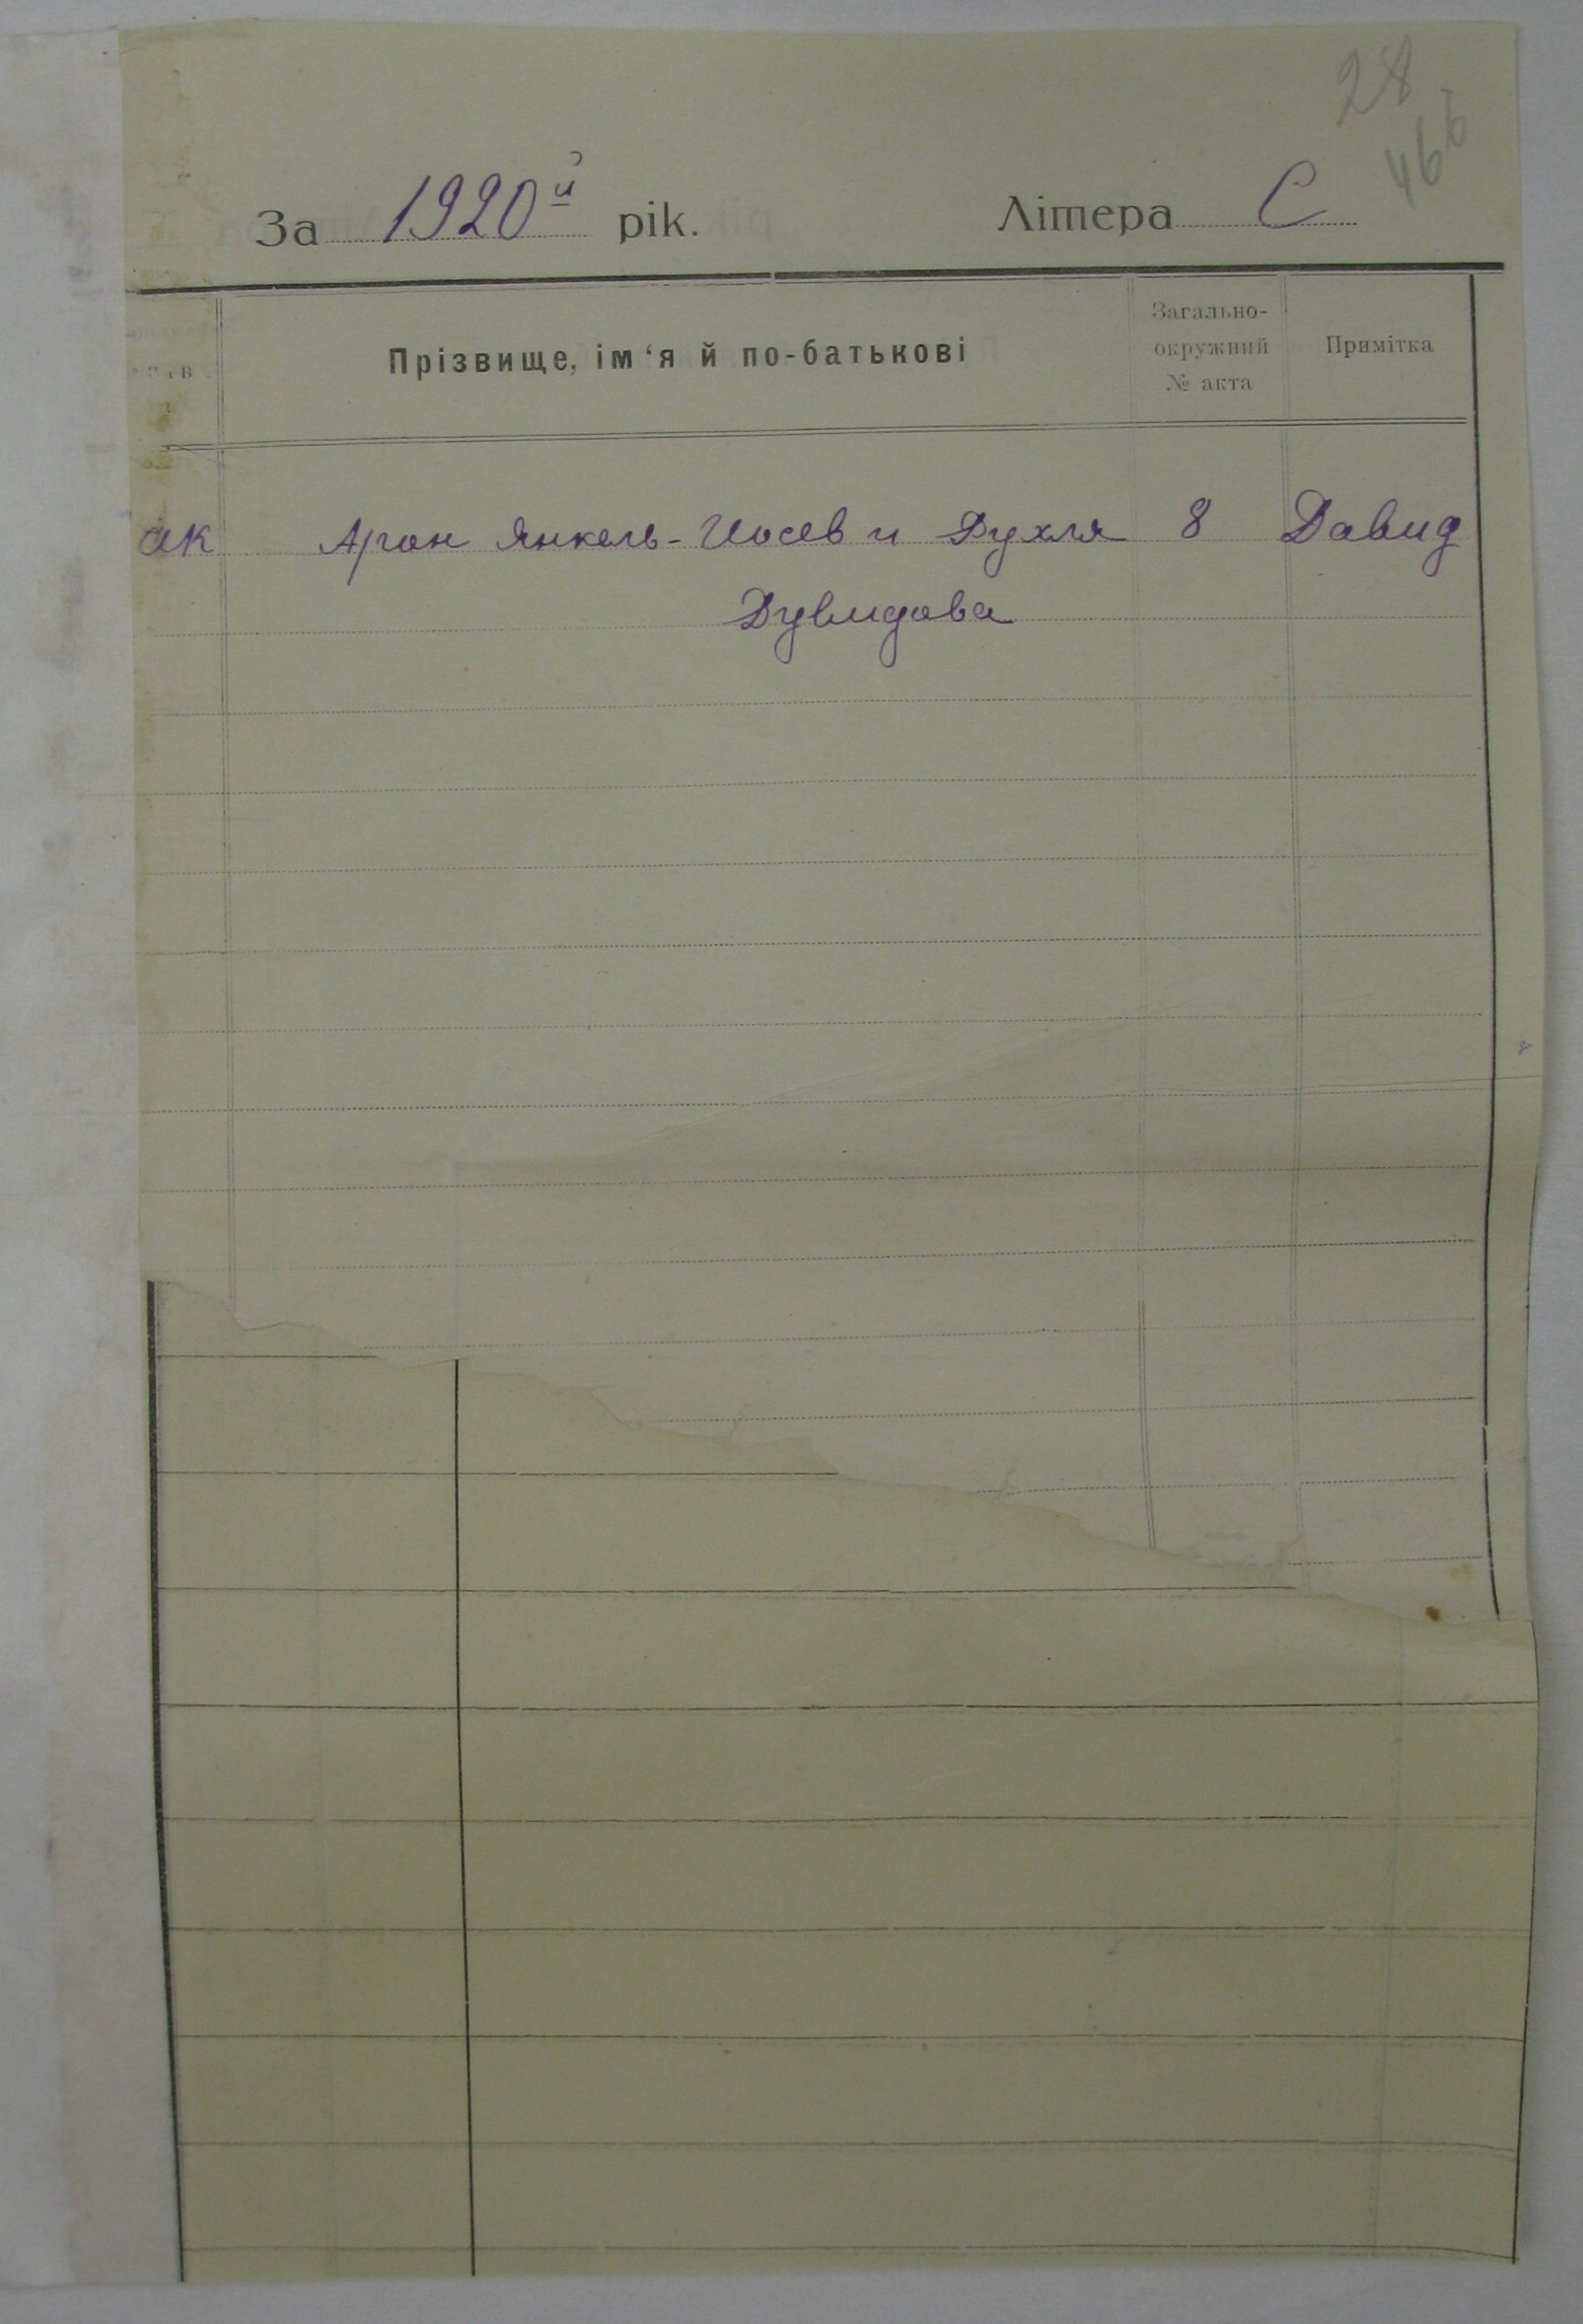 28
466
За 1920й рік. Літера С
Прізвище, ім‘я й по-батькові
Загально-
окружний
№ акта
Примітка
ак Арон Янкель-Иосев и Рухля 8 Давид
Дувидова